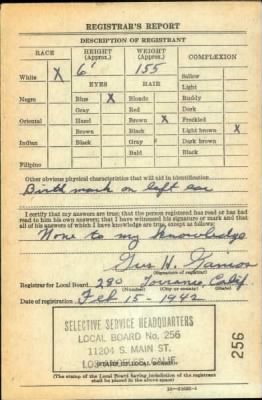 REGISTRAR'S REPORT
DESCRIPTION OF REGISTRANT
RACE HEIGHT (Approx.) WEIGHT (Approx.) COMPLEXION
White X 6' 155 Sallow
EYES HAIR Light
Negro Blue X Blonde Ruddy
Gray Red Dark
Oriental Hazel Brown X Freckled
Brown Black Light brown X
Indian Black Gray Dark brown
Bald Black
Filipino
Other obvious physical characteristics that will aid in identification
Birth mark on left ear
I certify that my answers are true; that the person registered has read or has had
read to him his own answers; that I have witnessed his signature or mark and that
all of his answers of which I have knowledge are true, except as follows:
None to my knowledge
Gus H.
(Signature of registrar)
Registrar for Local Board 280 Torrance, Calif
(Number) (City or county) (State)
Date of registration Feb 15-1942
SELECTIVE SERVICE HEADQUARTERS
LOCAL BOARD No. 256
11204 S. MAIN ST.
LOS ANGELES, CALIF.
(STAMP OF LOCAL BOARD)
256
(The stamp of the Local Board having jurisdiction of the registrant
shall be placed in the above space)